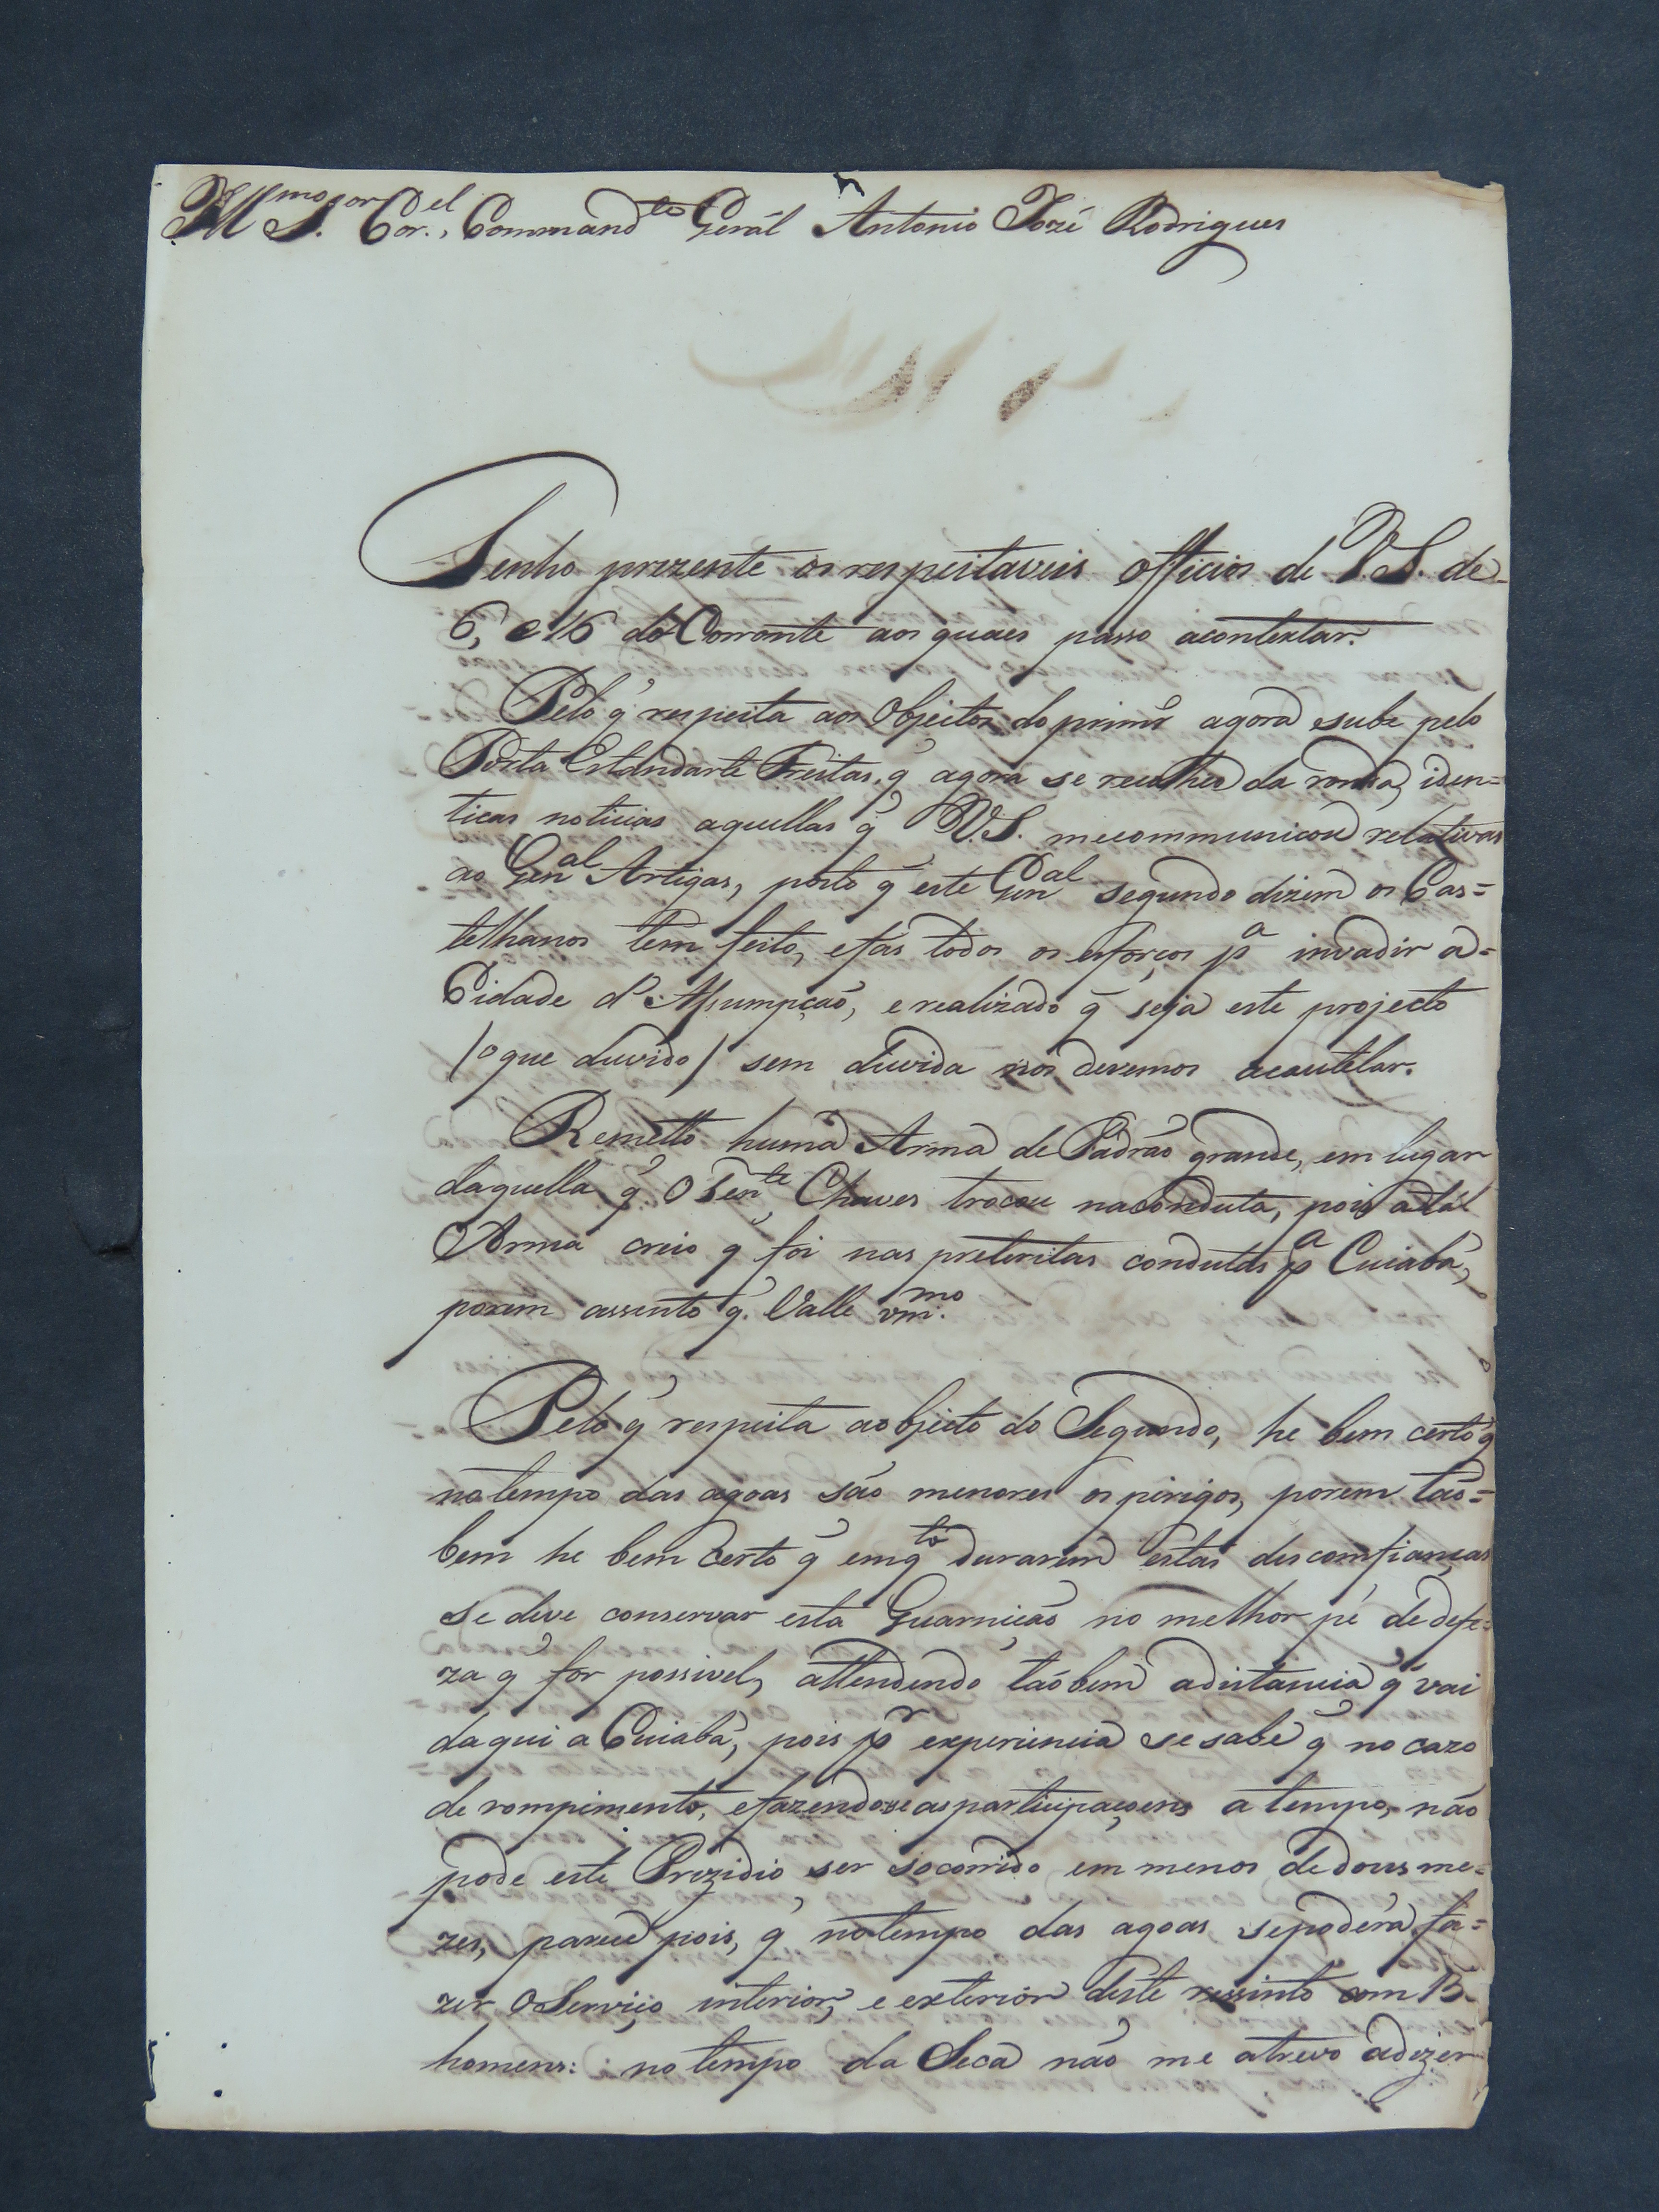 Ill.mo S.or Cor.el, Command.te Gerál Antonio Jozé Rodrigues
Tenho prezente os respeitaveis officios de V.S. de
6, e 16 do Corronte aos quaes passo acontextar.
Pelo q̃ respeita aos Objectos do primr.o agora sube pelo
Porta Estandarte Freitas, q̃ agora se recolheo da ronda, iden=
ticas noticias aquellas q̃ V.S. mecommunicou relativas
ao Gen.al Artigas, posto q̃ este Gen.al segundo dizem os Cas=
telhanos tem feito, efás todos os esforços p.a invadir a=
Cidade d'Assumpção, e realizado q̃ seja este projecto
/o que duvido/ sem duvida nos devemos acautelar.
Remetto huma Arma de Padrão grande, em lugar
daquella q̃ O Ten.te Chaves trocou naconduta, pois atál
Arma creio q̃ foi nas preteritas condutas p.a Cuiabá,
porem assento q̃ Valle o m.mo
Pelo q̃ respeita aobjecto do Segundo, he bem certo q̃
no tempo das agoas são menores os pirigos, porem tão=
bem he bem certo q̃ emq.to durarem estas descomfianças
se deve conservar esta Guarnição no melhor pé de defe=
za q̃ for possivel, attendendo tãobem adistancia q̃ vai
daqui a Cuiabá, pois p.r experiencia se sabe q̃ no cazo
de rompimento, efazendose asparticipaçoens a tempo, não
pode este Prezidio ser socorrido em menos de dous me=
zes, parece pois, q̃ notempo das agoas sepoderá fa=
zer oServiço interior, e exterior deste ressinto com
homens: no tempo da Seca não me atrevo adizer